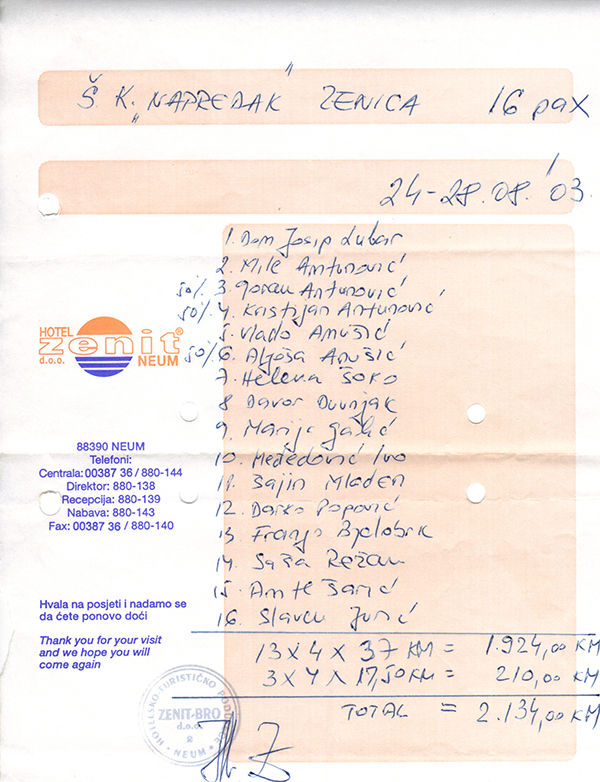 Š.K. "NAPREDAK" ZENICA 16 pax
24-28.08.'03.
1. Don Josip Lubar
2. Mile Antunović
50% 3. Goran Antunović
50% 4. Kristijan Antunović
5. Vlado Anušić
50% 6. Aljoša Anušić
7. Helena Šoko
8 Davor Duvnjak
9. Marija
10. Međedović Ivo
11. Bajin Mladen
12. Darko Popović
13. Franjo Bjelobrk
14. Saša Režan
15. Ante Šarić
16. Slaven Jurić
13 x 4 x 37 KM = 1.924,00 KM
3 x 4 x 17,50 KM = 210,00 KM
TOTAL = 2.134,00 KM
HOTEL
zenit®
d.o.o. NEUM
88390 NEUM
Telefoni:
Centrala: 00387 36 / 880-144
Direktor: 880-138
Recepcija: 880-139
Nabava: 880-143
Fax: 00387 36 / 880-140
Hvala na posjeti i nadamo se
da ćete ponovo doći
Thank you for your visit
and we hope you will
come again
ZENIT-BRO
d.o.o.
2
NEUM